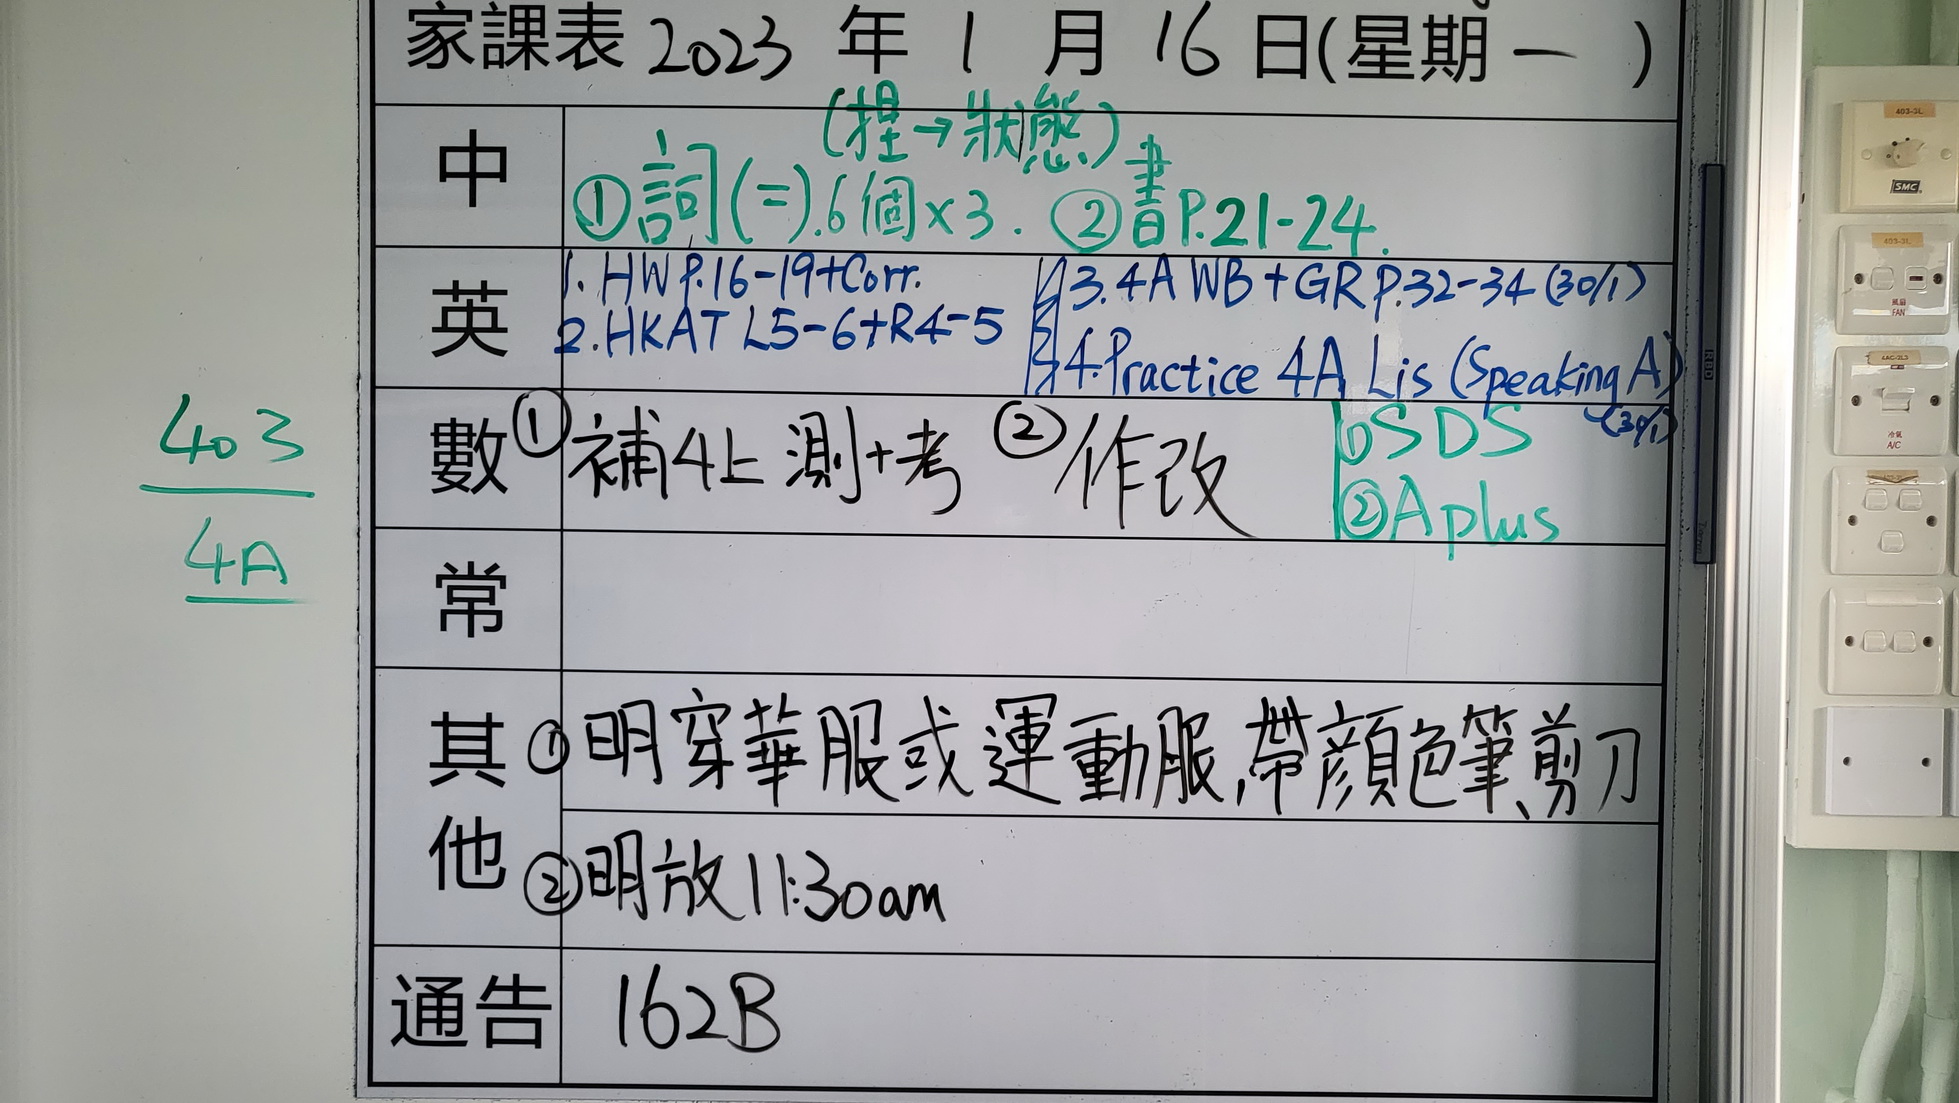 家課表 2023 年 1 月 16 日(星期一)
中
(捏→狀態)
①詞(二).6個×3. ②書P.21-24.
英
1. HW P.16-19+Corr.
2. HKAT L5-6+R4-5
3. 4A WB + GR P.32-34 (30/1)
4. Practice 4A Lis (Speaking A)
(30/1)
數
①補4上測+考 ②作改
①SDS
②Aplus
403
4A
常
其他
①明穿華服或運動服,帶顏色筆、剪刀
②明放11:30am
通告
162B
403-3L
SMC
403-3L
風扇
FAN
4AC-3L3
冷氣
A/C